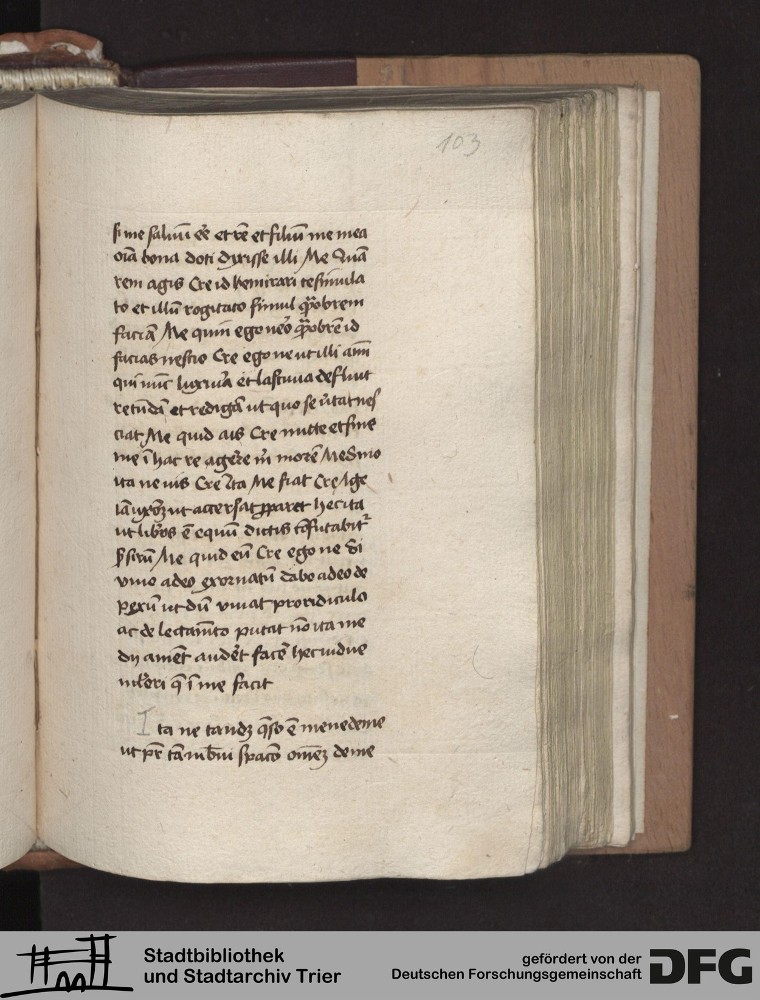 103
si me saluū eē et rē et filiū me mea
oīa bona doti dyxisse illi Me Quā
rem agis Cre id ts mirari te simula
to et illū rogitato simul q̄obrem
faciā Me quin ego vēo q̄obrē id
facias nescio Cre ego ne ut illi aīm
qui nūc luxuria et lasciuia defluit
retūdā et redigā ut quo se v̄tat nes
ciat Me quid ais Cre mitte et sine
me ī hac re agere m̄ morē Me Sino
ita ne uis Cre Ita Me fiat Cre Age
iā uxorē ut accersat pparet hec ita
ut lib̄os ē equū dictis cōfutabit᷑
S̄ sirū Me quid eū Cre ego ne Si
viuo adeo exornatū dabo adeo de
pexū ut dū viuat pro ridiculo
ac delectamēto putat nō ita me
dij amēt audēt facē hec vidue
mlieri q̄ ī me facit
Ita ne tandē q̄so ē menedeme
ut pr̄ tā ī breui spacio omēz de me
Stadtbibliothek
und Stadtarchiv Trier
gefördert von der
Deutschen Forschungsgemeinschaft
DFG